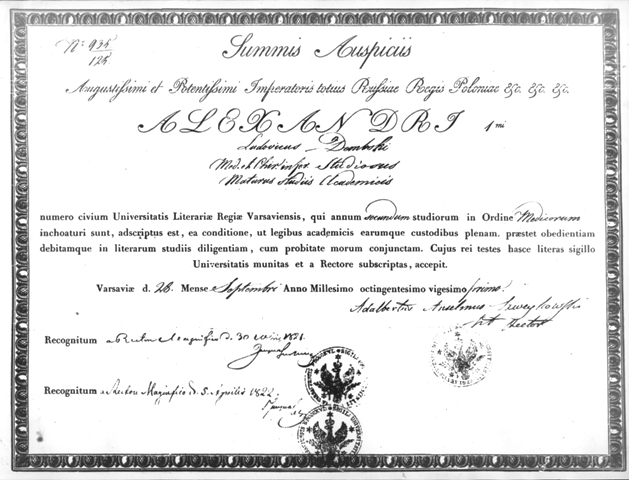 No 935
125
Summis Auspiciis
Augustissimi et Potentissimi Imperatoris totius Russiae Regis Poloniae &c. &c. &c.
ALEXANDRI I mi
Ludovicus Dembski
Studiosus
Maturus Studiis Academicis
numero civium Universitatis Literariæ Regiæ Varsaviensis, qui annum secundum studiorum in Ordine Medicorum
inchoaturi sunt, adscriptus est, ea conditione, ut legibus academicis earumque custodibus plenam. præstet obedientiam
debitamque in literarum studiis diligentiam, cum probitate morum conjunctam. Cujus rei testes hasce literas sigillo
Universitatis munitas et a Rectore subscriptas, accepit.
Varsaviæ d. 28. Mense Septembri Anno Millesimo octingentesimo vigesimo primo.
Adalbertus Anselmus Szweykowski
Rector
Recognitum a Rectore Magnifico d. 30 1821.
Recognitum a Rectore Magnifico d. 5. Aprilis 1822.